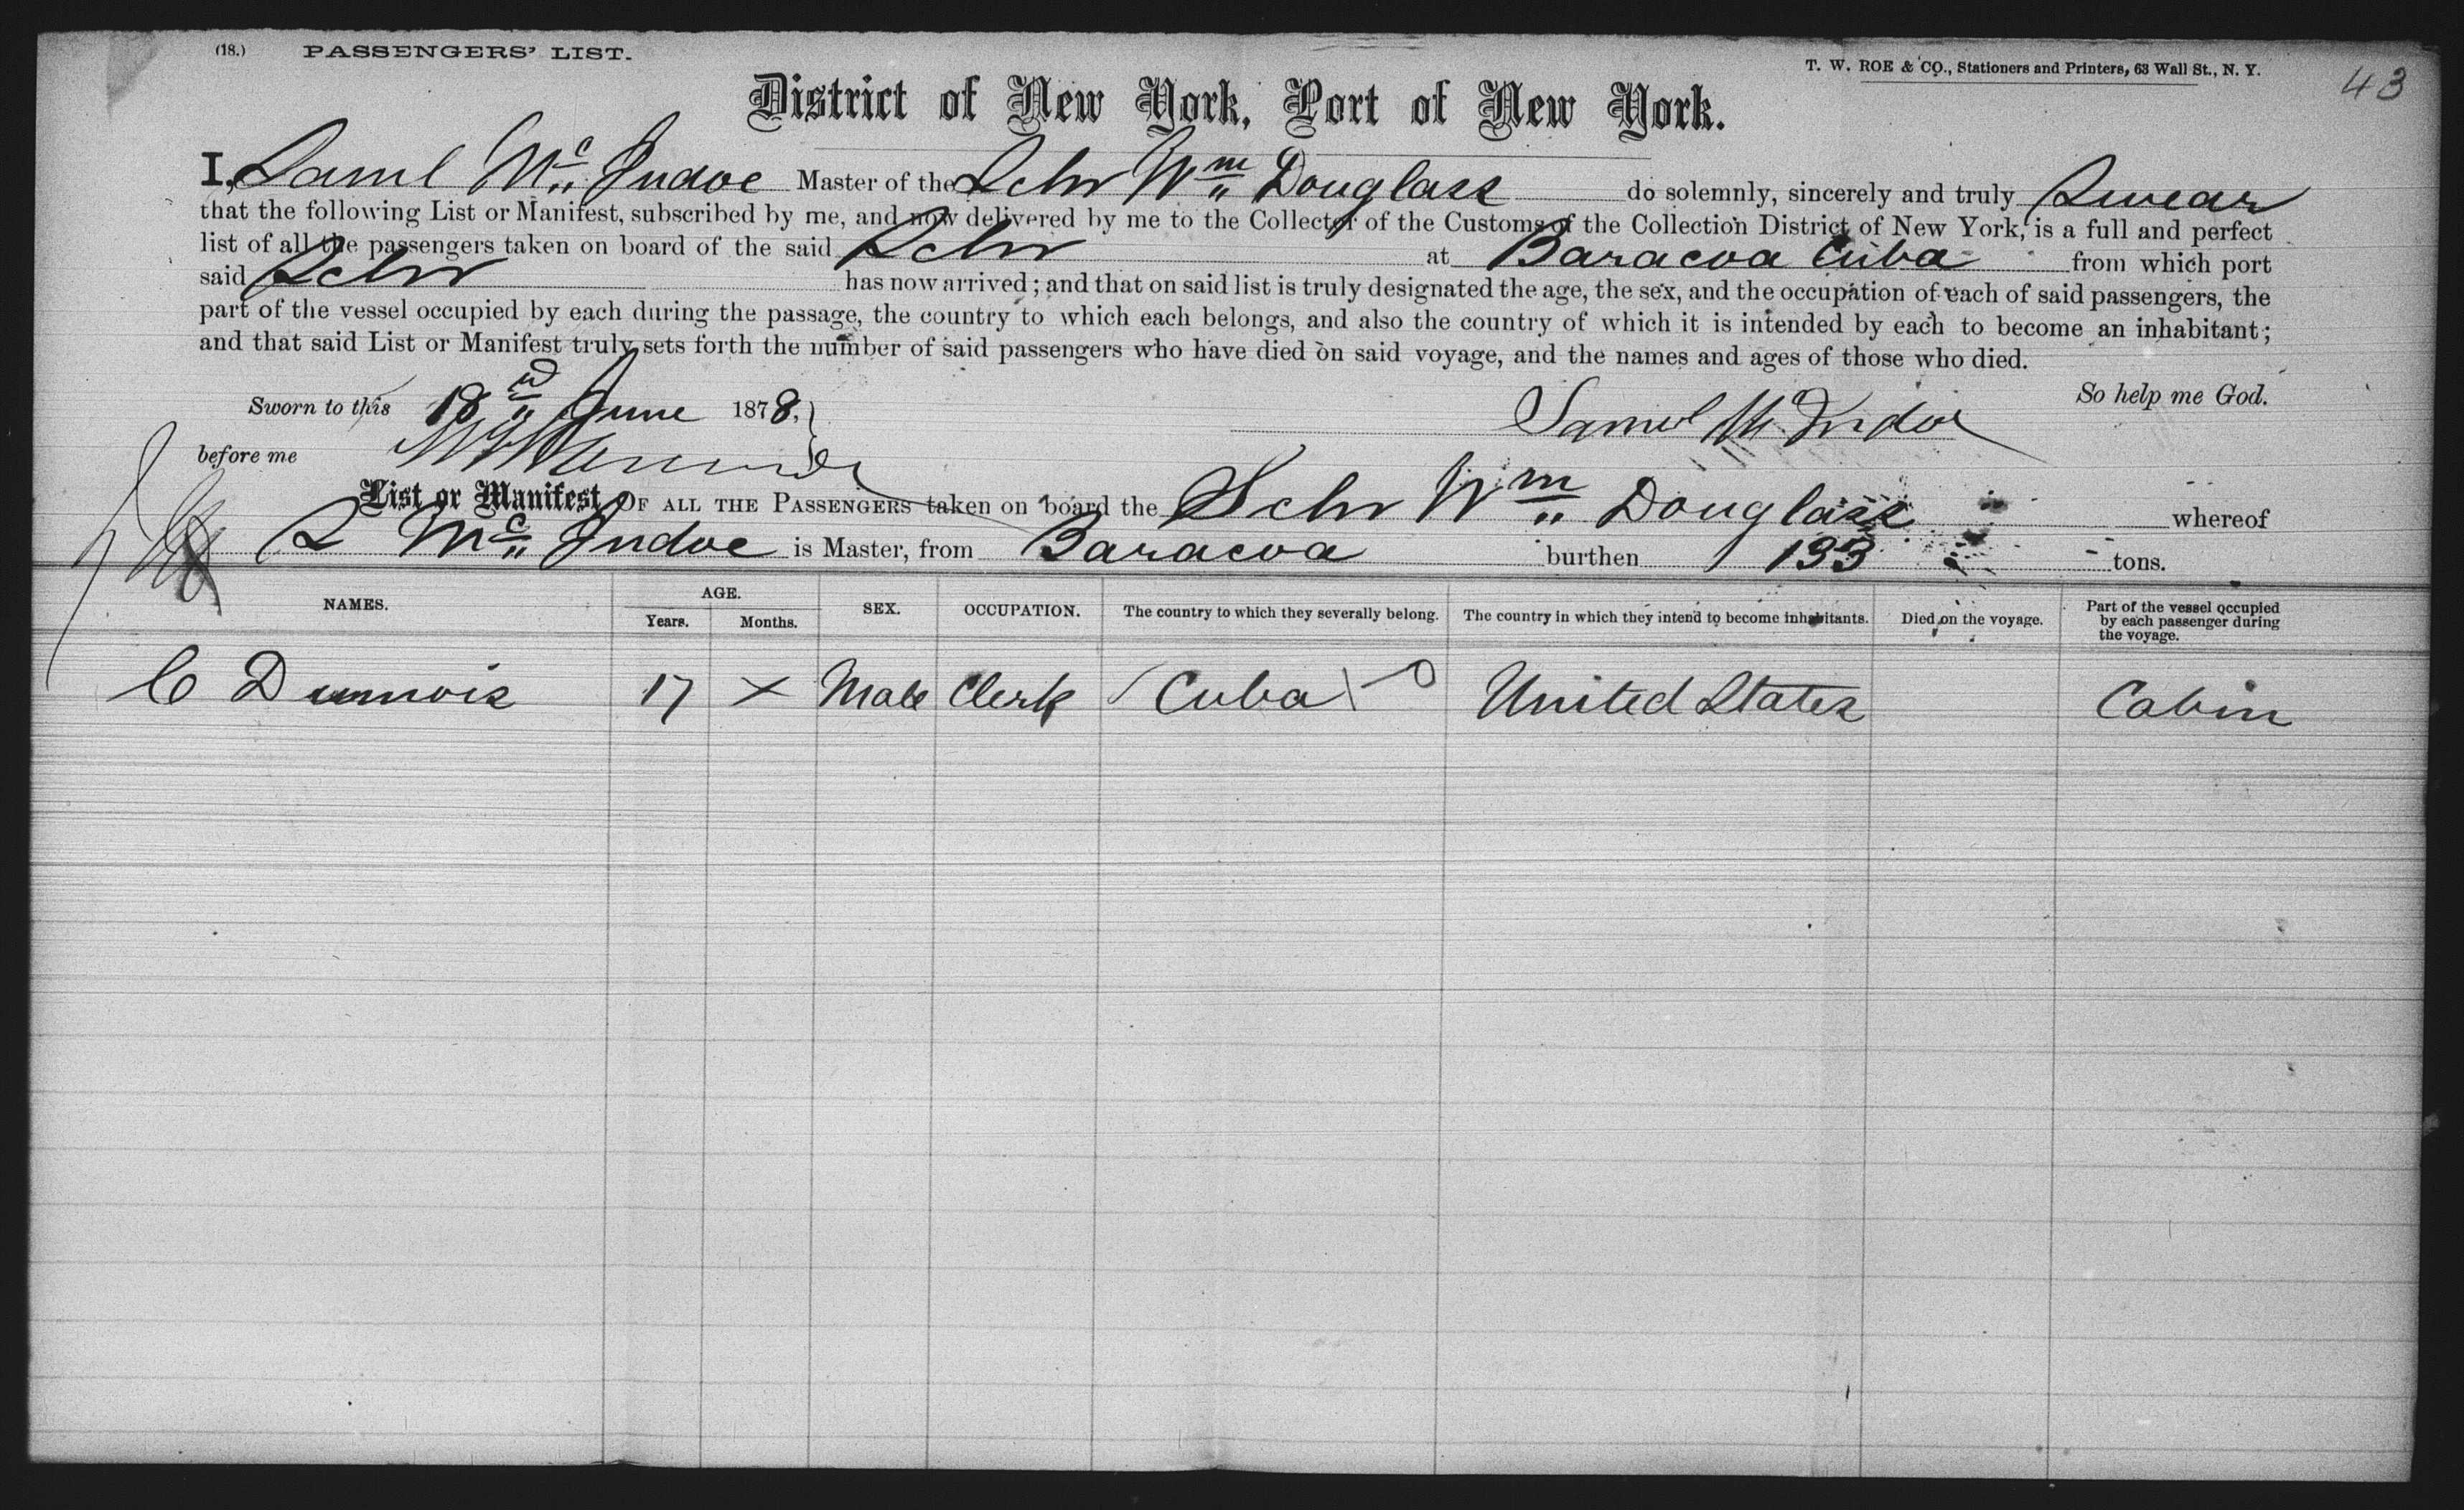 (18.) PASSENGERS' LIST.
T. W. ROE & CO., Stationers and Printers, 63 Wall St., N. Y.
43
District of New York, Port of New York.
I, Saml Mc Indoe Master of the Schr Wm Douglass do solemnly, sincerely and truly Swear
that the following List or Manifest, subscribed by me, and now delivered by me to the Collector of the Customs of the Collection District of New York, is a full and perfect
list of all the passengers taken on board of the said Schr at Baracoa Cuba from which port
said Schr has now arrived; and that on said list is truly designated the age, the sex, and the occupation of each of said passengers, the
part of the vessel occupied by each during the passage, the country to which each belongs, and also the country of which it is intended by each to become an inhabitant;
and that said List or Manifest truly sets forth the number of said passengers who have died on said voyage, and the names and ages of those who died.
So help me God.
Sworn to this 18 June 1878,
Samuel Mc Indoe
before me
List or Manifest OF ALL THE PASSENGERS taken on board the Schr Wm Douglass whereof
S Mc Indoe is Master, from Baracoa burthen 133 tons.
NAMES. AGE. Years. Months. SEX. OCCUPATION. The country to which they severally belong. The country in which they intend to become inhabitants. Died on the voyage. Part of the vessel occupied by each passenger during the voyage.
C Dumois 17 x Male Clerk Cuba United States Cabin